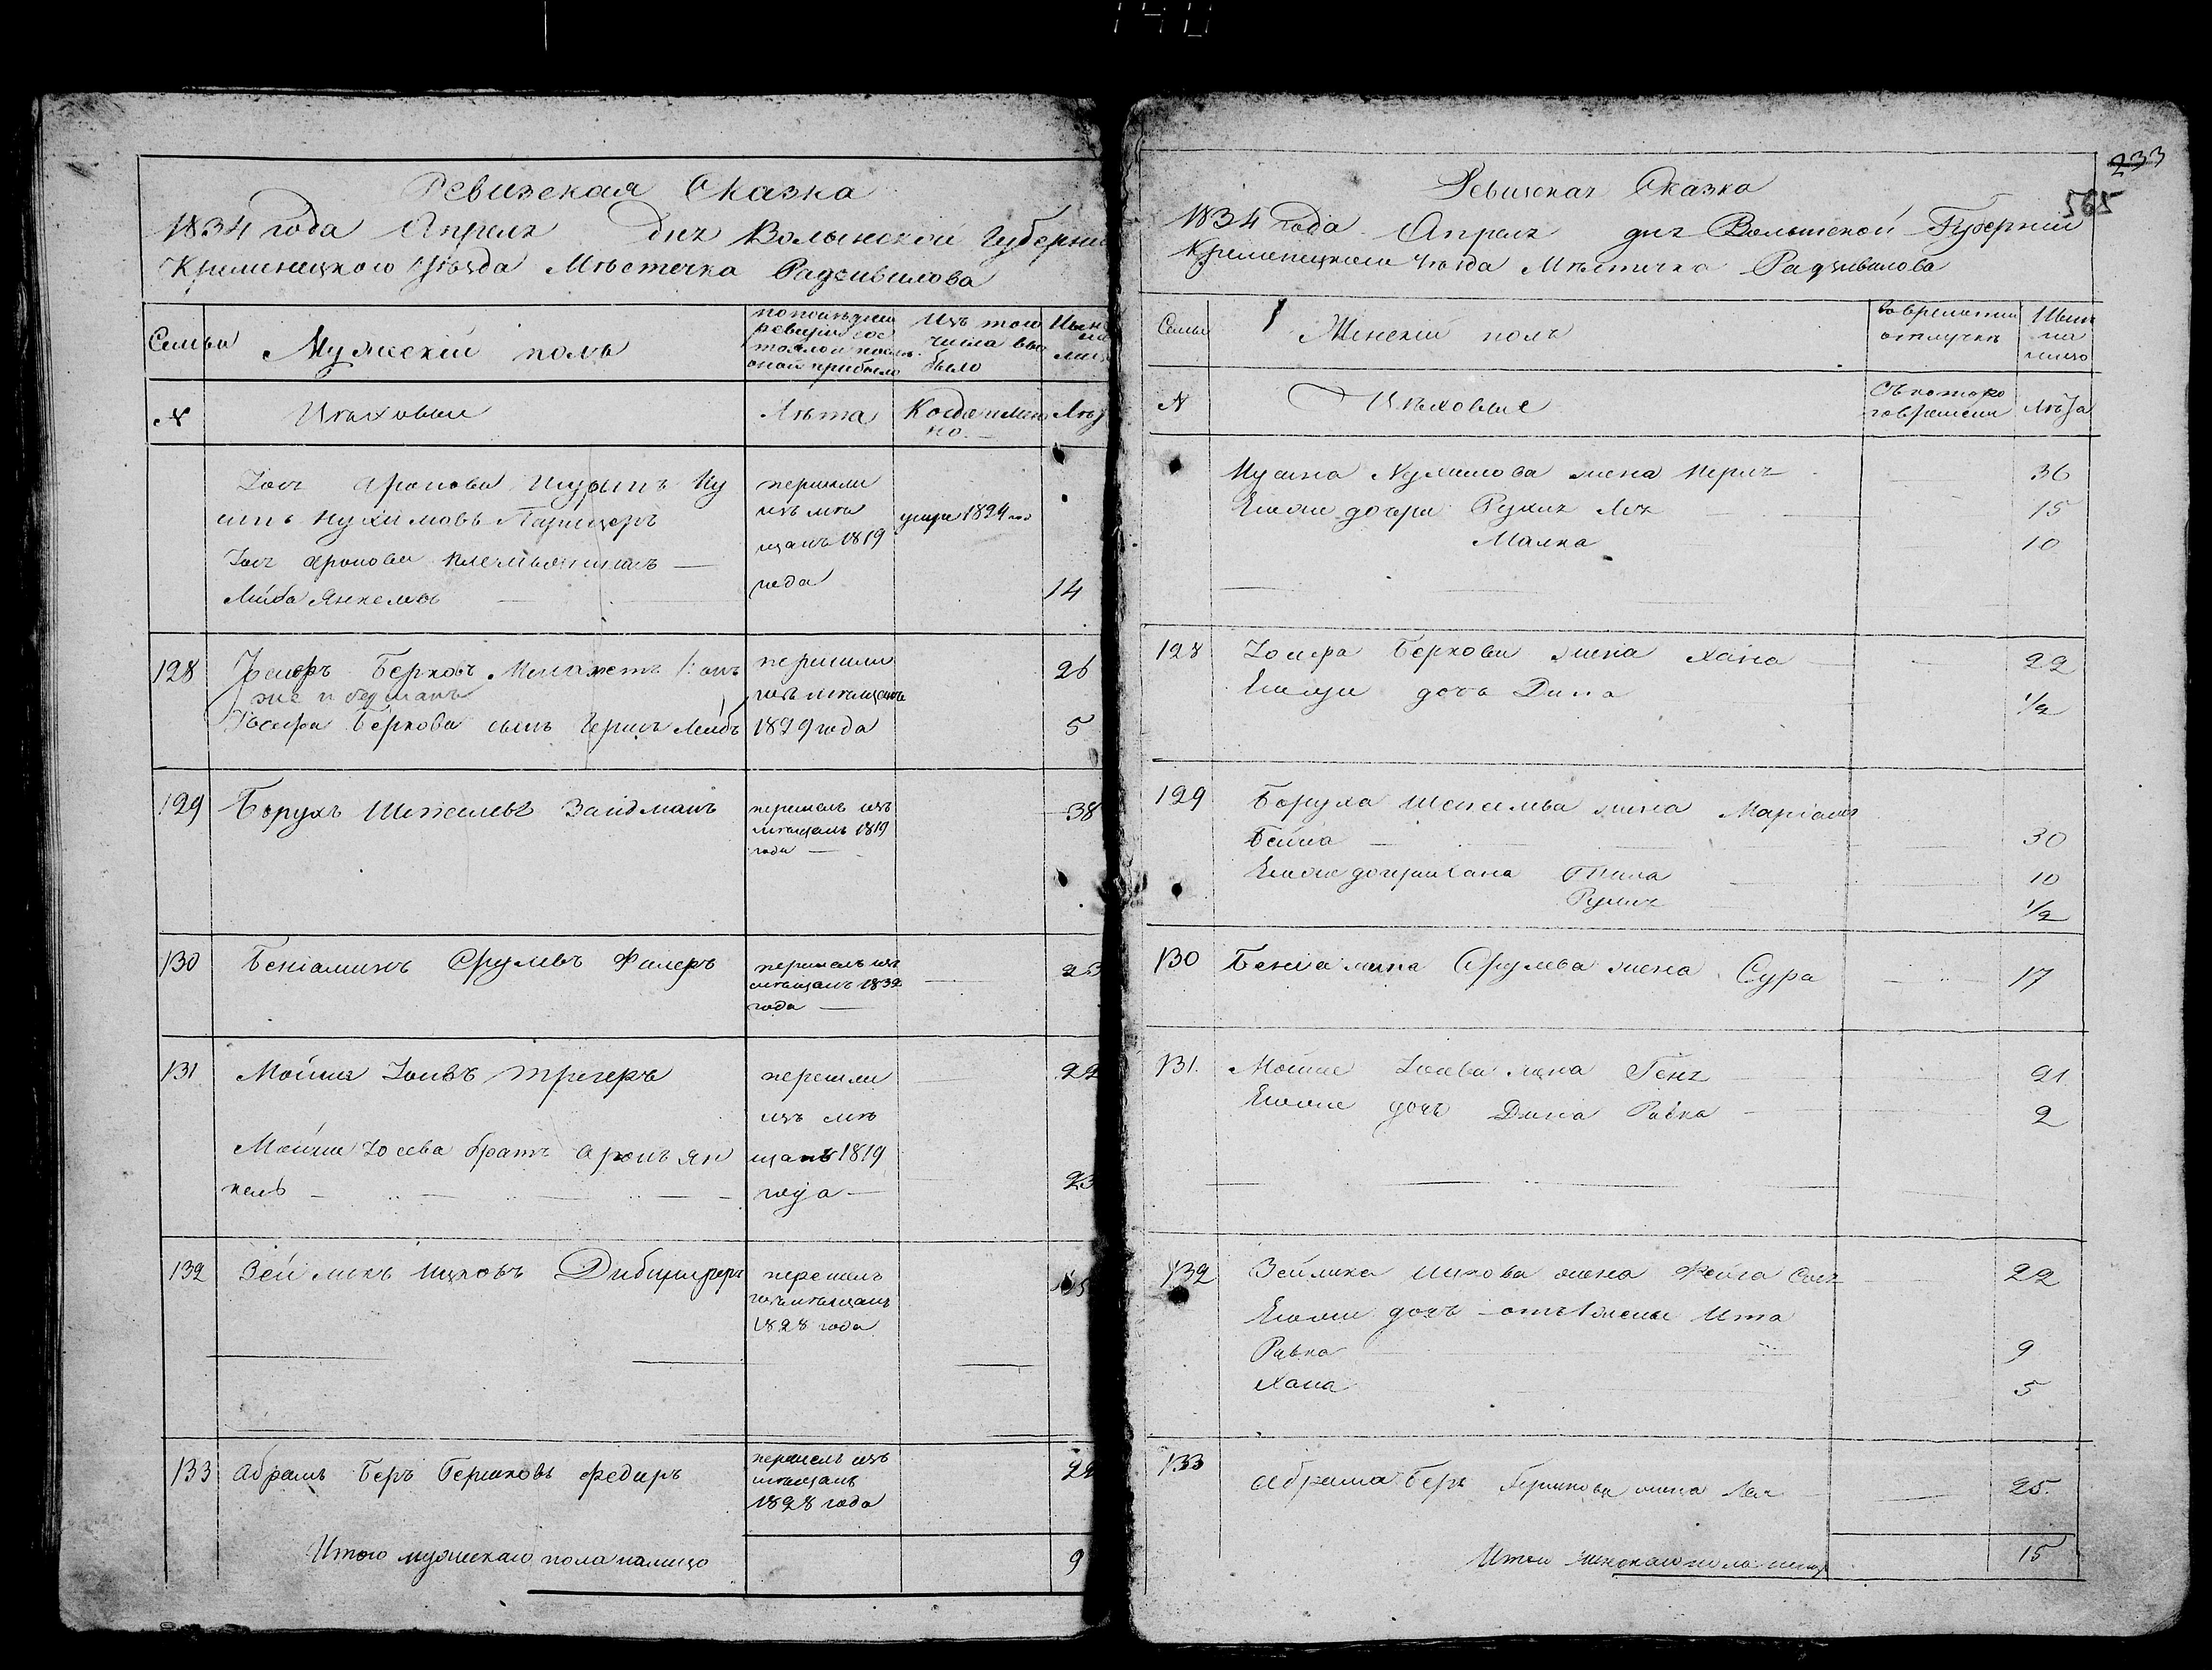 Ревизская Сказка
1834 года Апреля дня Волынской Губернии
Кременецкого Уѣзда Мѣстечка Радзивилова
Семьи
Мужескій полъ
Изъ того числа выбыло
N
Цѣховыи
Лѣта
Когда именно
Лѣта
Іося Аронова шуринъ Ну
химовъ
Іося Аронова племянникъ
Лейба Янкелевъ
перешли
изъ мѣ
щанъ 1819
года
умре 1824 го
14
128
Іосифъ Берковъ Меламетъ онъ
же и
Іосифа Беркова сынъ Гершъ Лейбъ
перешли
изъ мѣщанъ
1829 года
26
5
129
Борухъ Шепселевъ Зайдманъ
перешелъ изъ
мѣщанъ 1819
года
38
130
Беніаминъ Срулевъ Филеръ
перешелъ изъ
мѣщанъ 1832
года
23
131
Мойше Іосевъ Трегеръ
Мойши Іосева братъ Аронъ Ян
кель
перешли
изъ мѣ
щанъ 1819
года
22
23
132
Зейликъ Ицковъ
перешелъ
изъ мѣщанъ
1828 года
133
Абрамъ Беръ Гершковъ Федеръ
перешелъ изъ
мѣщанъ
1828 года
22
Итого мужескаго пола налицо
9
233
Ревизская Сказка
1834 года Апреля дня Волынской Губерніи
Кременецкого Уѣзда Мѣстечка Радзивилова
Семьи
Женскій полъ
во временной
отлучкѣ
Нынѣ
на
лицо
N
Цѣховые
Съ которо
го времени
Лѣта
жена Перля
36
Его же дочери Рухля Лея
15
Малка
10
128
Іосифа Беркова жена Хана
22
Его же дочь Дина
1/2
129
Боруха Шепселева жена Маріамъ
Бейла
30
Его же дочери
10
1/2
130
Беніамина Срулева жена Сура
17
131
Мойше Іосева жена Геня
21
Его же дочь Дина Ривка
2
132
Зейлика Ицкова жена Фейга Сося
22
Его же дочь от 1 жены Ита
Ривка
9
Хана
5
133
Абрама Беръ Гершкова жена Лея
25
Итого женскаго пола налицо
15